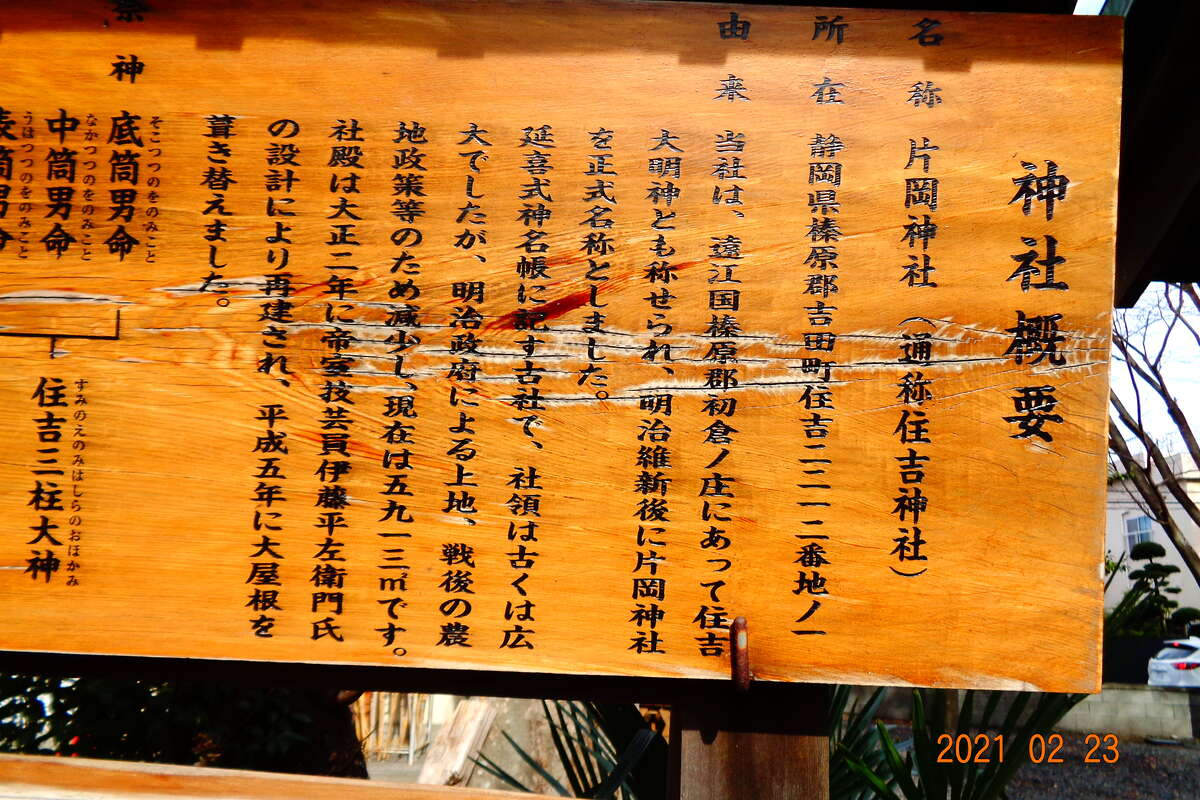 神社概要
名称 片岡神社（通称住吉神社）
所在 静岡県榛原郡吉田町住吉二二一二番地ノ一
由来 当社は、遠江国榛原郡初倉ノ庄にあって住吉
大明神とも称せられ、明治維新後に片岡神社
を正式名称としました。
延喜式神名帳に記す古社で、社領は古くは広
大でしたが、明治政府による上地、戦後の農
地政策等のため減少し、現在は五九一三㎡です。
社殿は大正二年に帝室技芸員伊藤平左衛門氏
の設計により再建され、平成五年に大屋根を
葺き替えました。
祭神 底筒男命
そこつつのをのみこと
中筒男命
なかつつのをのみこと
表筒男命
うはつつのをのみこと
住吉三柱大神
すみのえのみはしらのおほかみ
2021 02 23